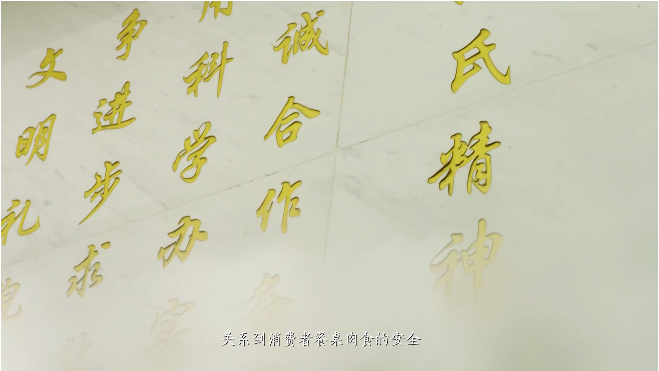 氏精神
诚合作务
用科学办实
争进步求
文明礼貌
关系到消费者餐桌肉食的安全